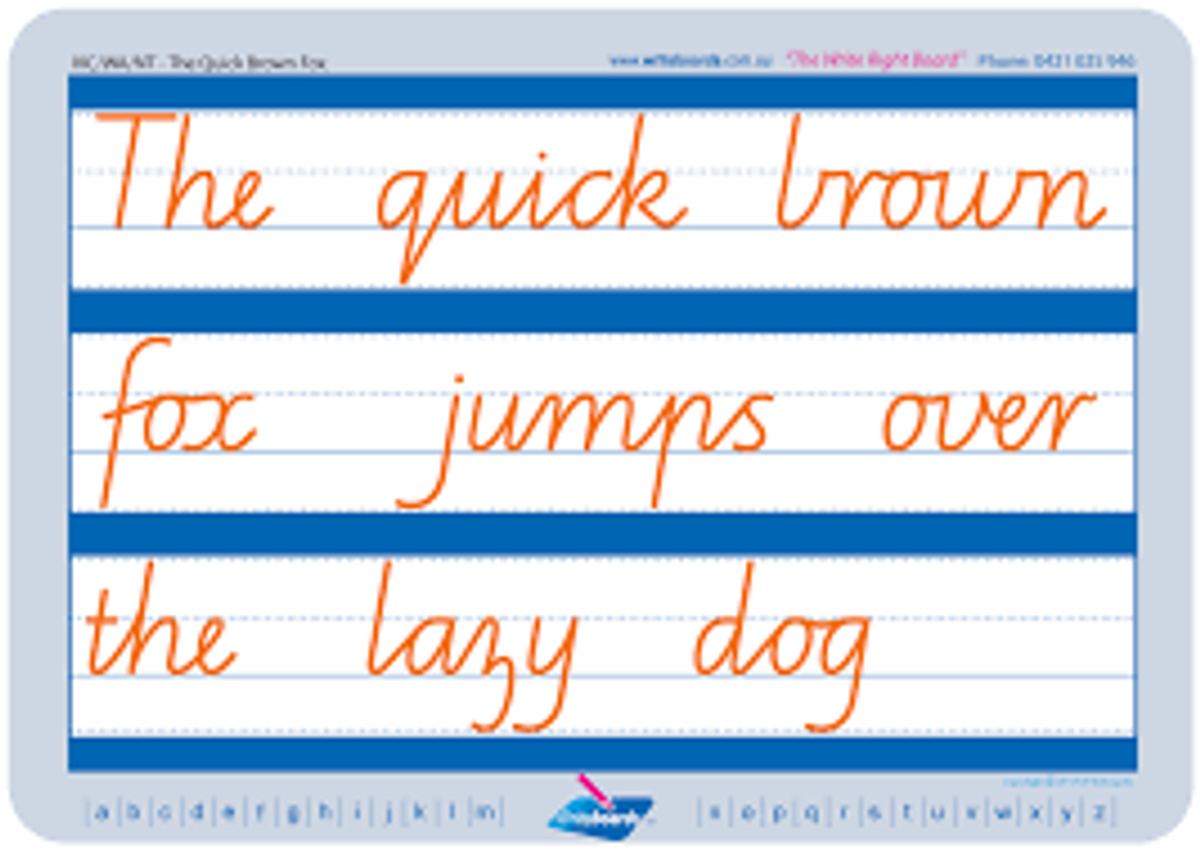 VIC/WA/NT - The Quick Brown Fox
www.writeboards.com.au "The Write Right Board" Phone 0421 025 946
The quick brown
fox jumps over
the lazy dog
a b c d e f g h i j k l m n o p q r s t u v w x y z